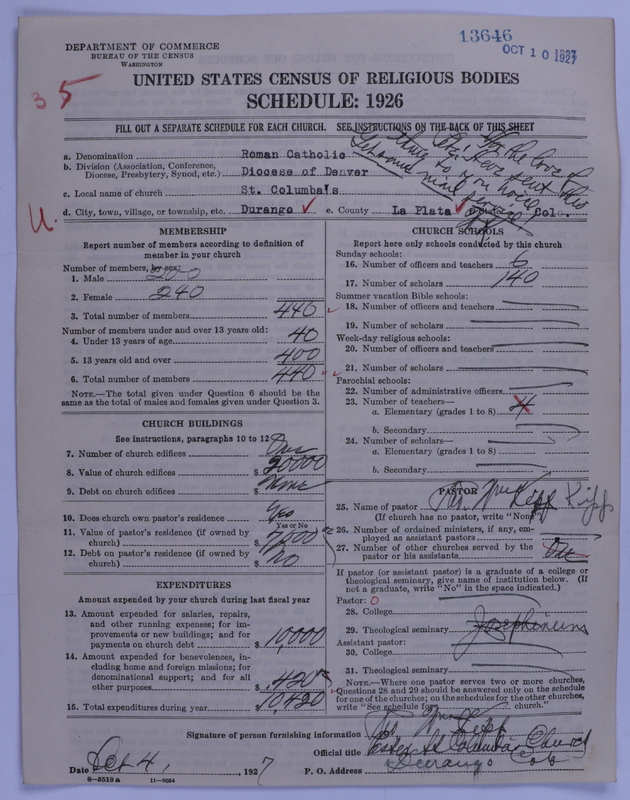 13646
OCT 10 1927
DEPARTMENT OF COMMERCE
BUREAU OF THE CENSUS
WASHINGTON
35
UNITED STATES CENSUS OF RELIGIOUS BODIES
SCHEDULE: 1926
FILL OUT A SEPARATE SCHEDULE FOR EACH CHURCH. SEE INSTRUCTIONS ON THE BACK OF THIS SHEET
For the love of
have sent this
to you twice
a. Denomination Roman Catholic
b. Division (Association, Conference, Diocese, Presbytery, Synod, etc.) Diocese of Denver
c. Local name of church St. Columba's
U. d. City, town, village, or township, etc. Durango e. County La Plata Col.
MEMBERSHIP
Report number of members according to definition of
member in your church
Number of members, by sex:
1. Male 200
2. Female 240
3. Total number of members 440
Number of members under and over 13 years old:
4. Under 13 years of age 40
5. 13 years old and over 400
6. Total number of members 440
NOTE.—The total given under Question 6 should be the
same as the total of males and females given under Question 3.
CHURCH BUILDINGS
See instructions, paragraphs 10 to 12
7. Number of church edifices One
8. Value of church edifices $ 20000
9. Debt on church edifices $ None
10. Does church own pastor's residence Yes
Yes or No
11. Value of pastor's residence (if owned by
church) $ 7,500
12. Debt on pastor's residence (if owned by
church) $ No
EXPENDITURES
Amount expended by your church during last fiscal year
13. Amount expended for salaries, repairs,
and other running expenses; for im-
provements or new buildings; and for
payments on church debt $ 10,000
14. Amount expended for benevolences, in-
cluding home and foreign missions; for
denominational support; and for all
other purposes $ 420
15. Total expenditures during year $ 10,420
CHURCH SCHOOLS
Report here only schools conducted by this church
Sunday schools:
16. Number of officers and teachers 6
17. Number of scholars 140
Summer vacation Bible schools:
18. Number of officers and teachers
19. Number of scholars
Week-day religious schools:
20. Number of officers and teachers
21. Number of scholars
Parochial schools:
22. Number of administrative officers
23. Number of teachers—
a. Elementary (grades 1 to 8) 4
b. Secondary
24. Number of scholars—
a. Elementary (grades 1 to 8)
b. Secondary
PASTOR
25. Name of pastor Wm Kipp Kipp
(If church has no pastor, write "None")
26. Number of ordained ministers, if any, em-
ployed as assistant pastors
27. Number of other churches served by the
pastor or his assistants One
If pastor (or assistant pastor) is a graduate of a college or
theological seminary, give name of institution below. (If
not a graduate, write "No" in the space indicated.)
Pastor: O
28. College
29. Theological seminary Josephinum
Assistant pastor:
30. College
31. Theological seminary
NOTE.—Where one pastor serves two or more churches,
Questions 28 and 29 should be answered only on the schedule
for one of the churches; on the schedules for the other churches,
write "See schedule for church."
Signature of person furnishing information Wm Kipp
Official title Pastor St Columbas Church
Date Oct 4, 1927 P. O. Address Durango Colo
8—5518a 11—9054